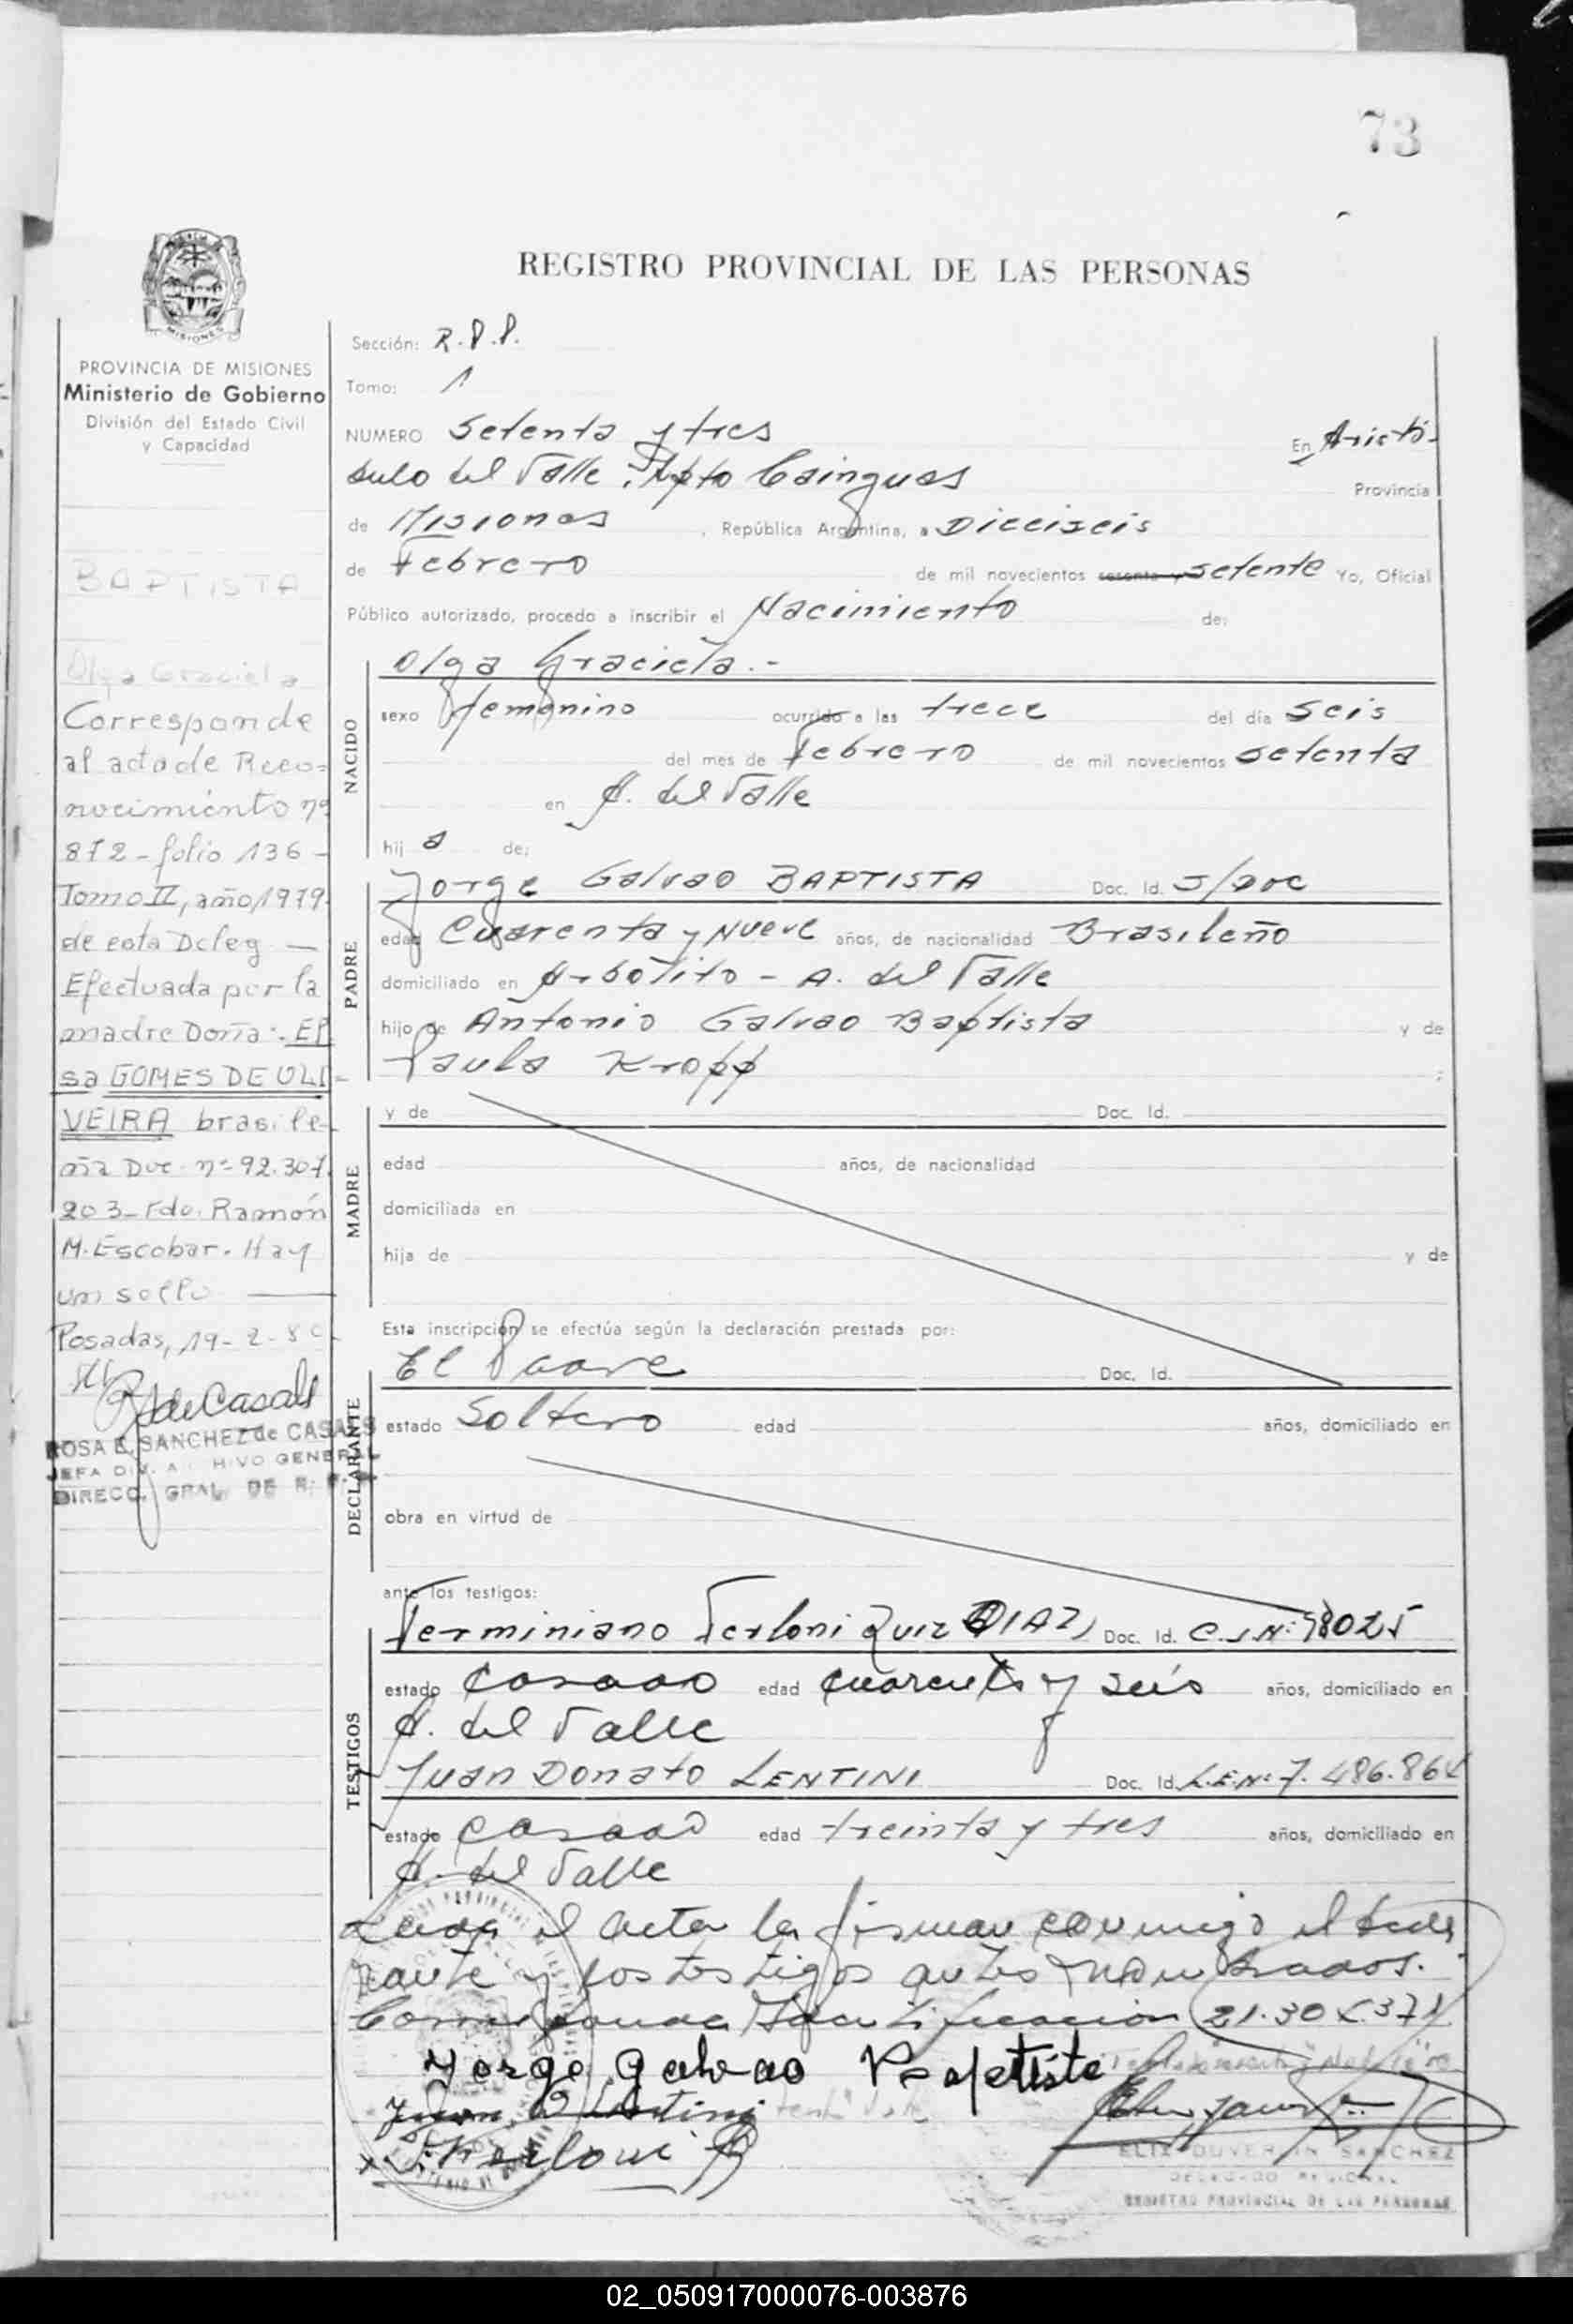 73
REGISTRO PROVINCIAL DE LAS PERSONAS
MISIONES
PROVINCIA DE MISIONES
Ministerio de Gobierno
División del Estado Civil
y Capacidad
BAPTISTA
Olga Graciela
Corresponde
al acta de Reco=
nocimiento nº
872 - folio 136 -
Tomo II, año 1979.
de esta Deleg —
Efectuada por la
madre Doña:. El
sa GOMES DE OLI=
VEIRA brasile-
ña Doc. nº 92.307.
203 - Fdo. Ramón
M. Escobar. Hay
un sello —
Posadas, 19-2-80-
RS de Casals
ROSA E. SANCHEZ de CASALS
JEFA DIV. ARCHIVO GENERAL
DIRECC. GRAL. DE R. P. P.
Sección: R.P.P.
Tomo: 1
NUMERO Setenta y tres En Aristó-
bulo del Valle, Dpto Cainguas Provincia
de Misiones , República Argentina, a Dieciseis
de Febrero de mil novecientos sesenta y setenta Yo, Oficial
Público autorizado, procedo a inscribir el Nacimiento de:
NACIDO
Olga Graciela.-
sexo femenino ocurrido a las trece del día seis
del mes de Febrero de mil novecientos setenta
en A. del Valle
hij a de:
PADRE
Jorge Galvao BAPTISTA Doc. Id. S/Doc
edad Cuarenta y Nueve años, de nacionalidad Brasileño
domiciliado en Arbolito - A. del Valle
hijo de Antonio Galvao Baptista y de
Paula Kropp ;
MADRE
y de Doc. Id.
edad años, de nacionalidad
domiciliada en
hija de y de
Esta inscripción se efectúa según la declaración prestada por:
DECLARANTE
El Padre Doc. Id.
estado Soltero edad años, domiciliado en
obra en virtud de
ante los testigos:
TESTIGOS
Ferminiano Ferloni Ruiz DIAZ, Doc. Id. C.I.Nº: 98025
estado Casado edad cuarenta y seis años, domiciliado en
A. del Valle
Juan Donato LENTINI Doc. Id. L.E.Nº 7.486.864
estado Casado edad treinta y tres años, domiciliado en
A. del Valle
Leida el acta la firman conmigo el decla
rante y los testigos antes nombrados.
Corresponde Identificacion 21.304.371
Jorge Galvao Baptista
Juan D Lentini
Ferloni
ELIX DUVERLIN SANCHEZ
DELEGADO REGIONAL
REGISTRO PROVINCIAL DE LAS PERSONAS
02_050917000076-003876